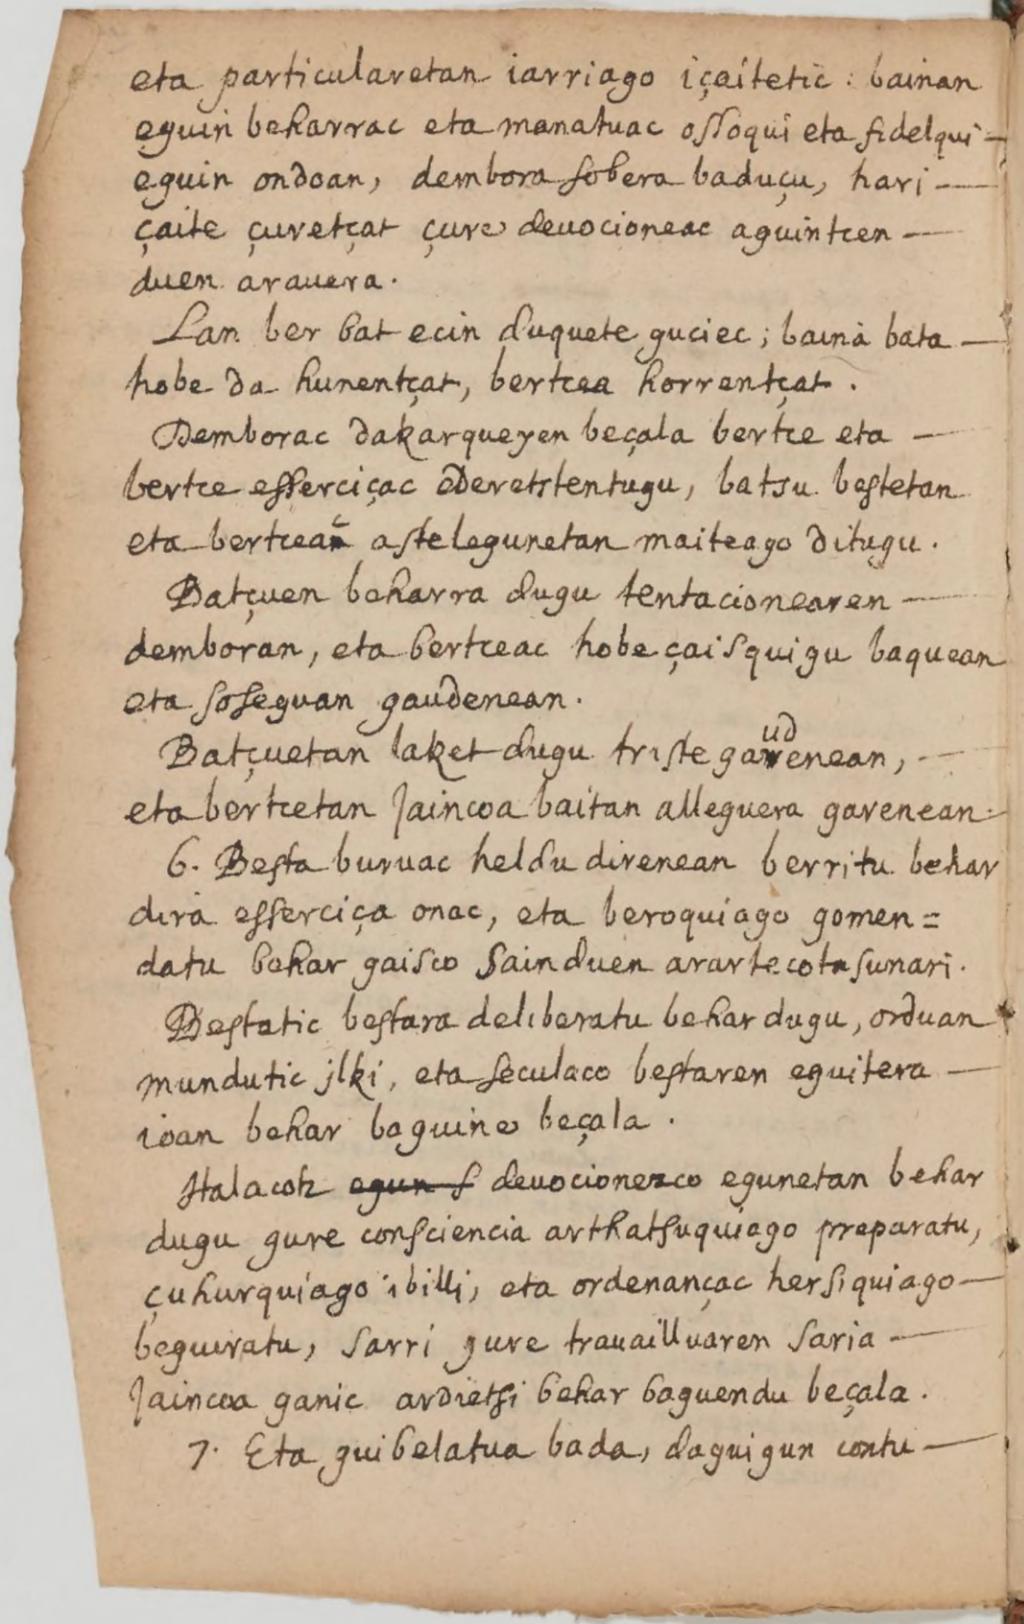 eta particularetan iarriago içaitetic : bainan
eguin beharrac eta manatuac ossoqui eta fidelqui —
eguin ondoan, dembora sobera baduçu, hari —
çaite çuretçat çure deuocioneac aguintcen —
duen arauera.
Lan ber bat ecin duquete guciec ; baina bata —
hobe da hunentçat, bertcea horrentçat .
Demborac dakarqueyen beçala bertce eta —
bertce esserciçac ederetstentugu, batsu bestetan
eta bertceac astelegunetan maiteago ditugu .
Batçuen beharra dugu tentacionearen —
demboran, eta bertceac hobe çaisquigu baquean
eta soseguan gaudenean .
Batçuetan laket dugu triste gaudenean, —
eta bertcetan Jaincoa baitan alleguera garenean .
6. Besta buruac heldu direnean berritu behar
dira esserciça onac, eta beroquiago gomen=
datu behar gaisco Sainduen arartecotasunari .
Bestatic bestara deliberatu behar dugu, orduan
mundutic jlki, eta seculaco bestaren eguitera —
ioan behar baguine beçala .
Halacotz ~~egun s~~ deuocionezco egunetan behar
dugu gure consciencia arthatsuquiago preparatu,
çuhurquiago ibilli, eta ordenançac hersiquiago —
beguiratu, sarri gure trauailluaren saria —
Jaincoa ganic ardietsi behar baguendu beçala .
7. Eta guibelatua bada, daguigun contu —